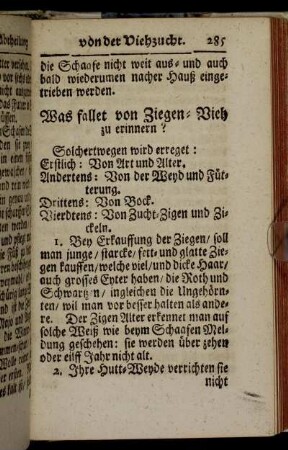 von der Viehzucht. 285
die Schaafe nicht weit aus- und auch
bald wiederumen nacher Hauß einge-
trieben werden.
Was fallet von Ziegen-Vieh
zu erinnern?
Solchertwegen wird erreget:
Erstlich: Von Art und Alter.
Andertens: Von der Weyd und Füt-
terung.
Drittens: Von Bock.
Vierdtens: Von Zucht-Zigen und Zi-
ckeln.
1. Bey Erkauffung der Ziegen/ soll
man junge/ starcke/ fett- und glatte Zie-
gen kauffen/ welche viel/ und dicke Haar/
auch grosses Eyter haben/ die Roth und
Schwartz n/ ingleichen die Ungehörn-
ten/ wil man vor besser halten als ande-
re. Der Zigen Alter erkennet man auf
solche Weiß wie beym Schaafen Mel-
dung geschehen: sie werden über zehen
oder eilff Jahr nicht alt.
2. Ihre Hutt-Weyde verrichten sie
nicht